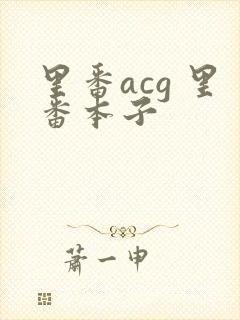 里番acg 里
番本子
萧一申